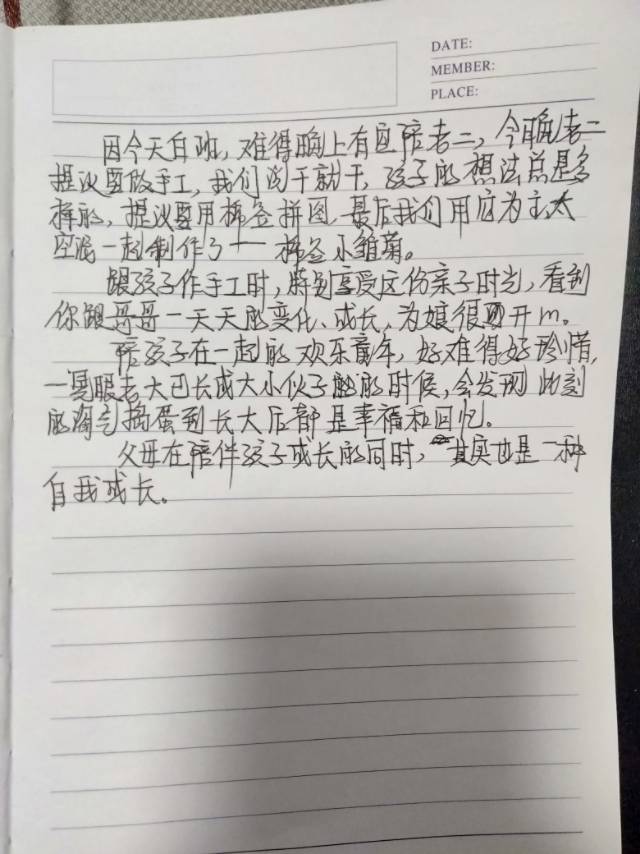 DATE:
MEMBER:
PLACE:
因今天白班，难得晚上有空陪老二，今晚老二
提议要做手工，我们说干就干，孩子的想法总是多
样的，提议要用棉签拼图，最后我们用它为主，太
空泥一起制作了一 棉签小雏菊。
跟孩子作手工时，特别享受这份亲子时光，看到
你跟哥哥一天天的变化、成长，为娘很开m。
陪孩子在一起的欢乐童年，好难得好珍惜，
一晃眼老大已长成大小伙子的时候，会发现此刻
的淘气捣蛋到长大后都是幸福和回忆。
父母在陪伴孩子成长的同时，其实也是一种
自我成长。